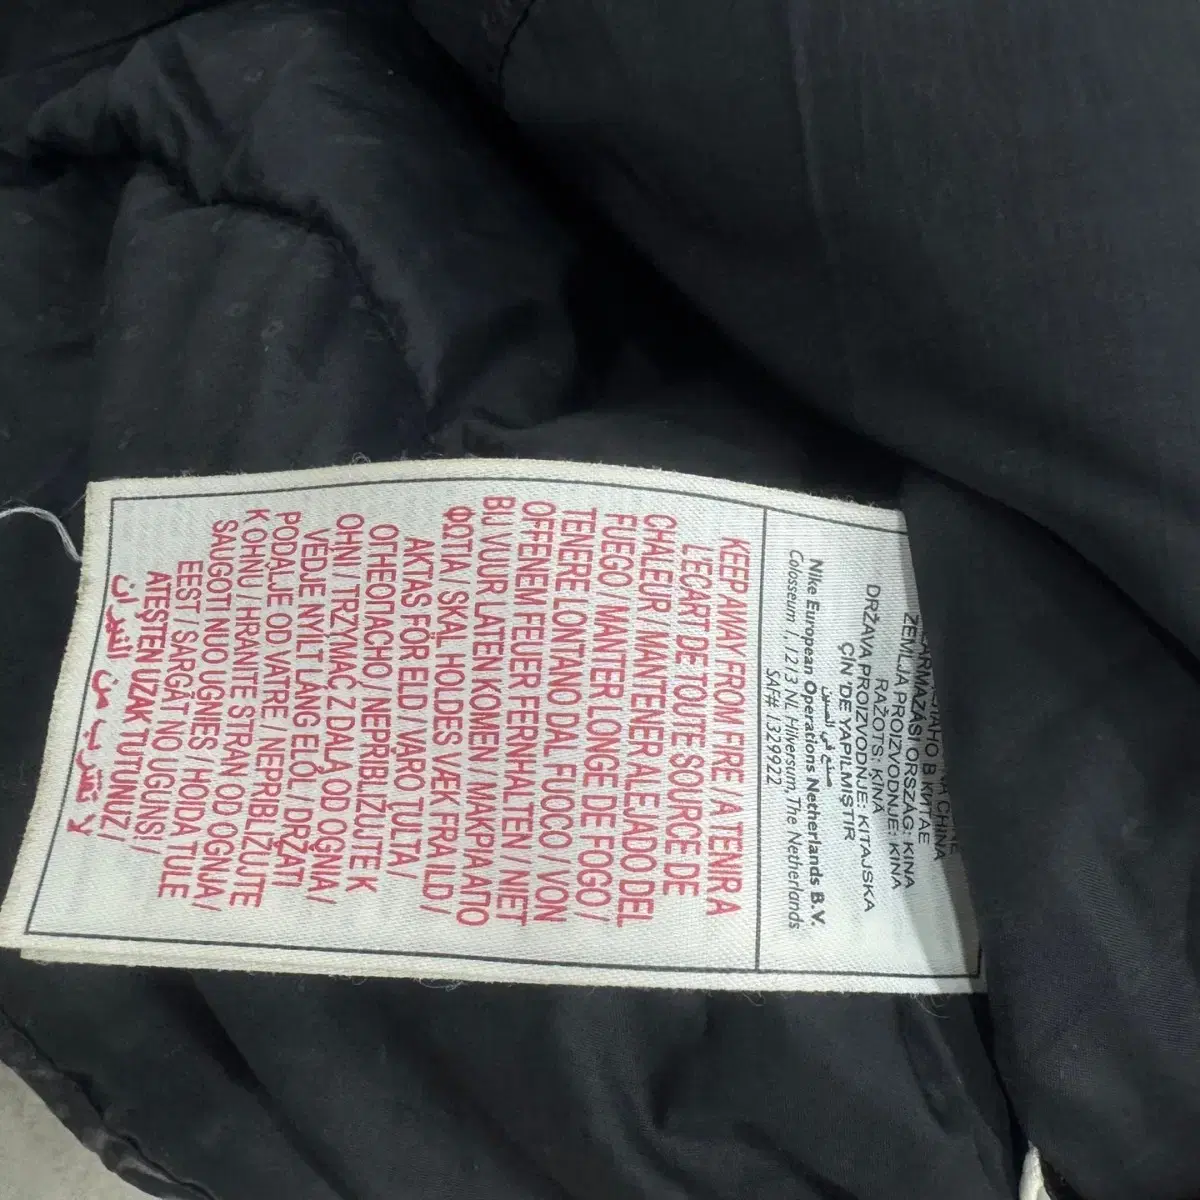 CHINA
В КИТАЕ
SZÁRMAZÁSI ORSZÁG: KINA
ZEMLJA PROIZVODNJE: KINA
RAŽOTS: ĶĪNA
DRŽAVA PROIZVODNJE: KITAJSKA
ÇİN'DE YAPILMIŞTIR
صنع في الصين
Nike European Operations Netherlands B.V.
Colosseum 1, 1213 NL Hilversum, The Netherlands
SAF# 1329922
KEEP AWAY FROM FIRE / A TENIR A
L'ECART DE TOUTE SOURCE DE
CHALEUR / MANTENER ALEJADO DEL
FUEGO / MANTER LONGE DE FOGO /
TENERE LONTANO DAL FUOCO / VON
OFFENEM FEUER FERNHALTEN / NIET
BIJ VUUR LATEN KOMEN / ΜΑΚΡΙΑ ΑΠΟ
ΦΩΤΙΑ / SKAL HOLDES VÆK FRA ILD /
AKTAS FÖR ELD / VARO TULTA /
ОГНЕОПАСНО / NEPŘIBLIŽUJTE K
OHNI / TRZYMAĆ Z DALA OD OGNIA /
VÉDJE NYÍLT LÁNG ELŐL / DRŽATI
PODALJE OD VATRE / NEPRIBLIŽUJTE
K OHŇU / HRANITE STRAN OD OGNJA /
SAUGOTI NUO UGNIES / HOIDA TULE
EEST / SARGĀT NO UGUNS /
ATEŞTEN UZAK TUTUNUZ /
لا تقترب من النيران